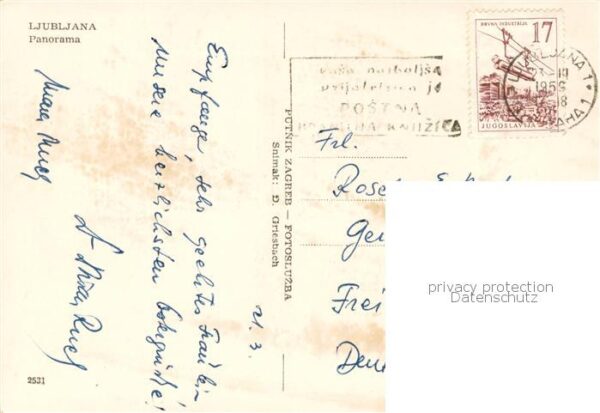 LJUBLJANA
Panorama
Empfange, sehr geehrtes Fräulein
Unsere herzlichsten Ostergrüße!
21. 3.
PUTNIK ZAGREB — FOTOSLUŽBA
Snimak: D. Griesbach
vaša najboljša
prijateljica je
POŠTNA
HRANILNA KNJIŽICA
DRVNA INDUSTRIJA
17
JUGOSLAVIJA
LJUBLJANA 1
Frl.
Frei
privacy protection
Datenschutz
2531